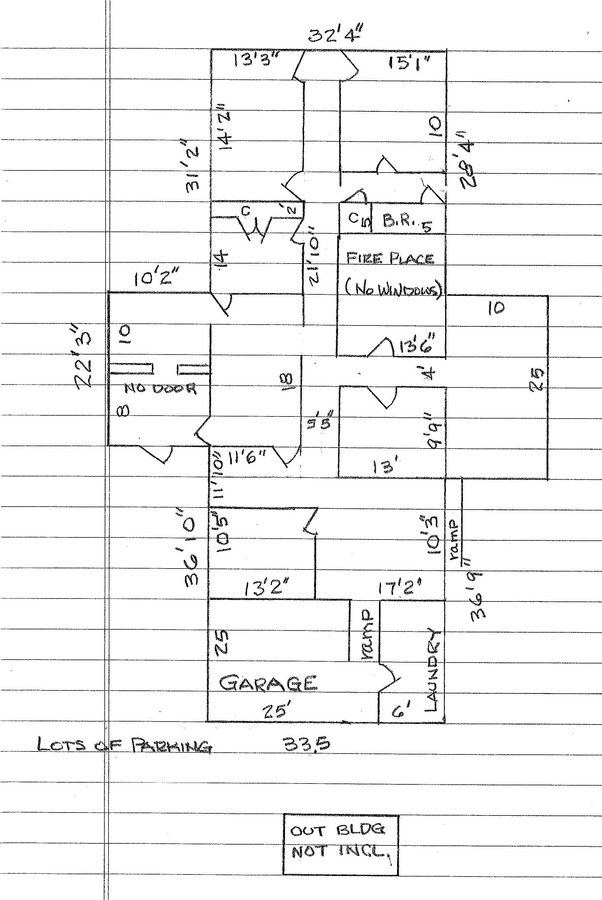 32'4"
13'3" 15'1"
31'2"
14'2"
10
28'4"
C 2' C 5 B.R. 5
14
21'10"
FIRE PLACE
(NO WINDOWS)
10'2"
10
22'3"
10
13'6"
NO DOOR
18
4'
25
8
5'5"
9'9"
11'6"
13'
11'10"
36'10"
10'5"
10'3"
ramp
36'9"
13'2" 17'2"
25
ramp
LAUNDRY
GARAGE
25' 6'
LOTS OF PARKING 33,5
OUT BLDG
NOT INCL.